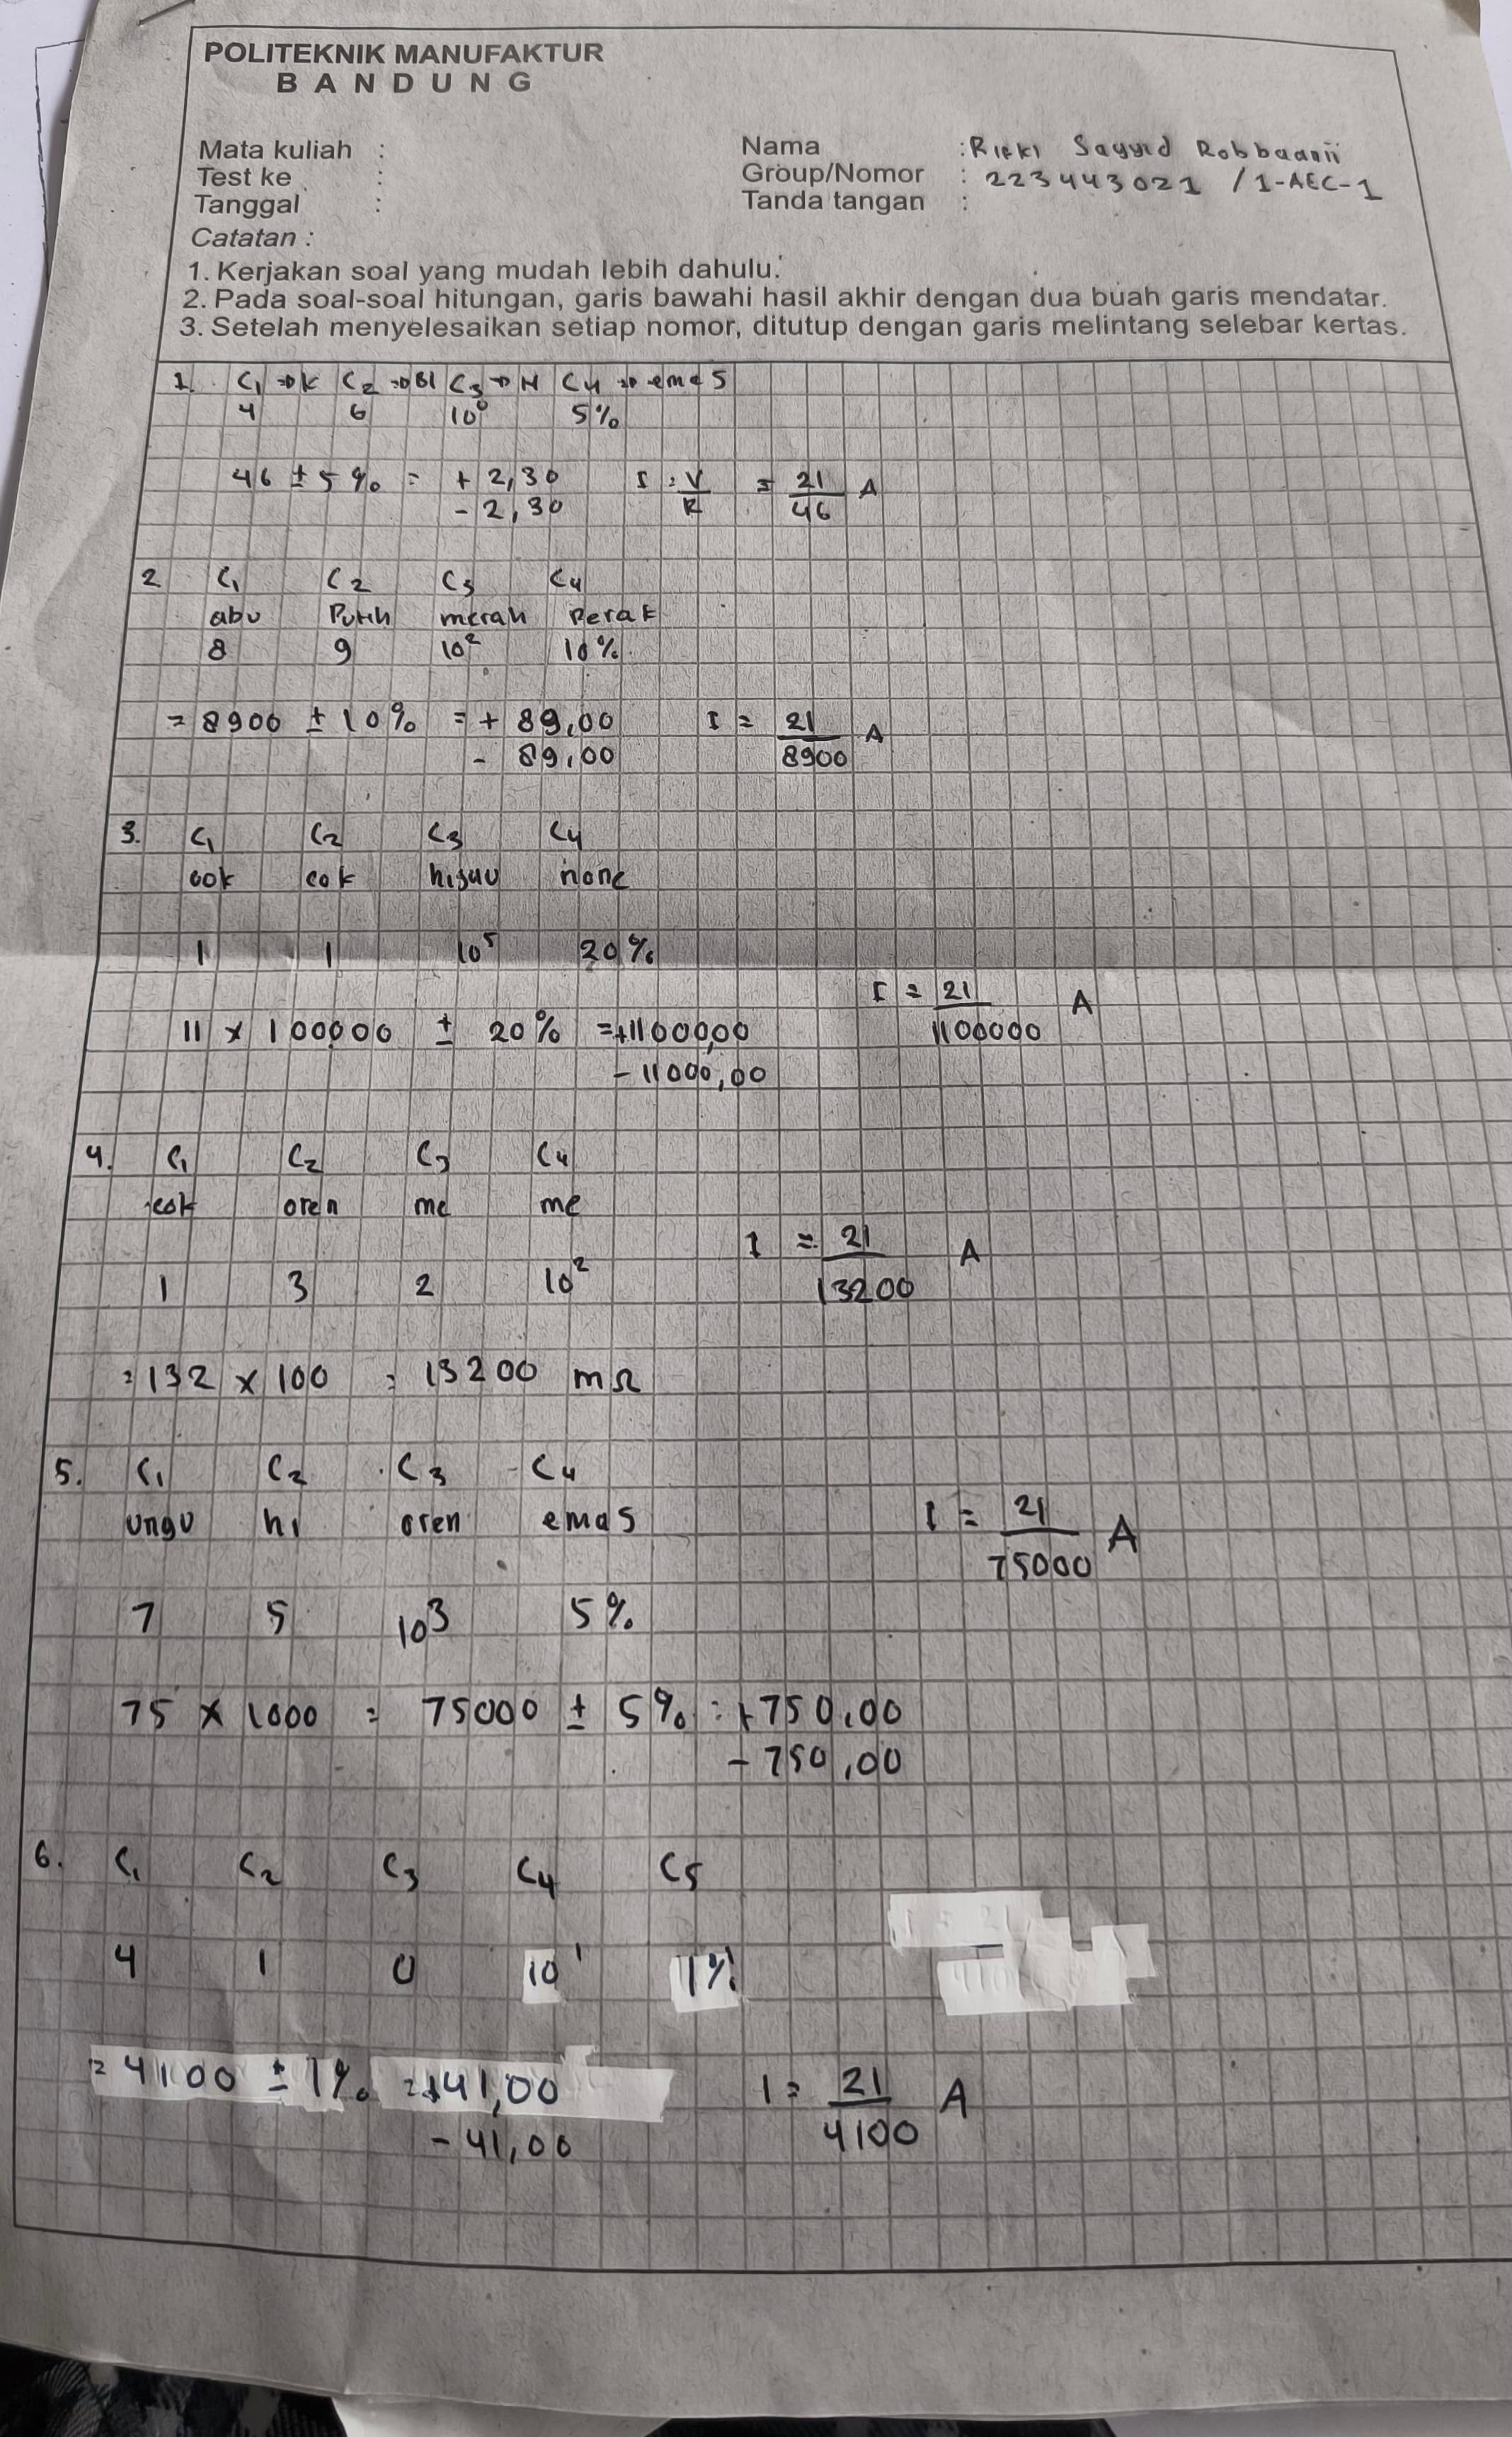 POLITEKNIK MANUFAKTUR
BANDUNG
Mata kuliah :
Test ke :
Tanggal :
Catatan :
Nama : Rifki Sayyid Robbaanii
Group/Nomor : 223443021 / 1-AEC-1
Tanda tangan :
1. Kerjakan soal yang mudah lebih dahulu.
2. Pada soal-soal hitungan, garis bawahi hasil akhir dengan dua buah garis mendatar.
3. Setelah menyelesaikan setiap nomor, ditutup dengan garis melintang selebar kertas.
1. C₁ ⇒ K C₂ ⇒ Bl C₃ ⇒ H C₄ ⇒ emas
4 6 10⁰ 5%
46 ± 5% = + 2,30 I = V/R = 21/46 A
- 2,30
2 C₁ C₂ C₃ C₄
abu Putih merah Perak
8 9 10² 10%
= 8900 ± 10% = + 89,00 I = 21/8900 A
- 89,00
3. C₁ C₂ C₃ C₄
cok cok hijau none
1 1 10⁵ 20%
I = 21/1100000 A
11 x 100000 ± 20% = +11000,00
- 11000,00
4. C₁ C₂ C₃ C₄
cok oren me me
I = 21/13200 A
1 3 2 10²
= 132 x 100 = 13200 mΩ
5. C₁ C₂ C₃ C₄
ungu hi oren emas
I = 21/75000 A
7 5 10³ 5%
75 x 1000 = 75000 ± 5% = +750,00
- 750,00
6. C₁ C₂ C₃ C₄ C₅
4 1 0 10¹ 1%
= 4100 ± 1% = +41,00 I = 21/4100 A
- 41,00